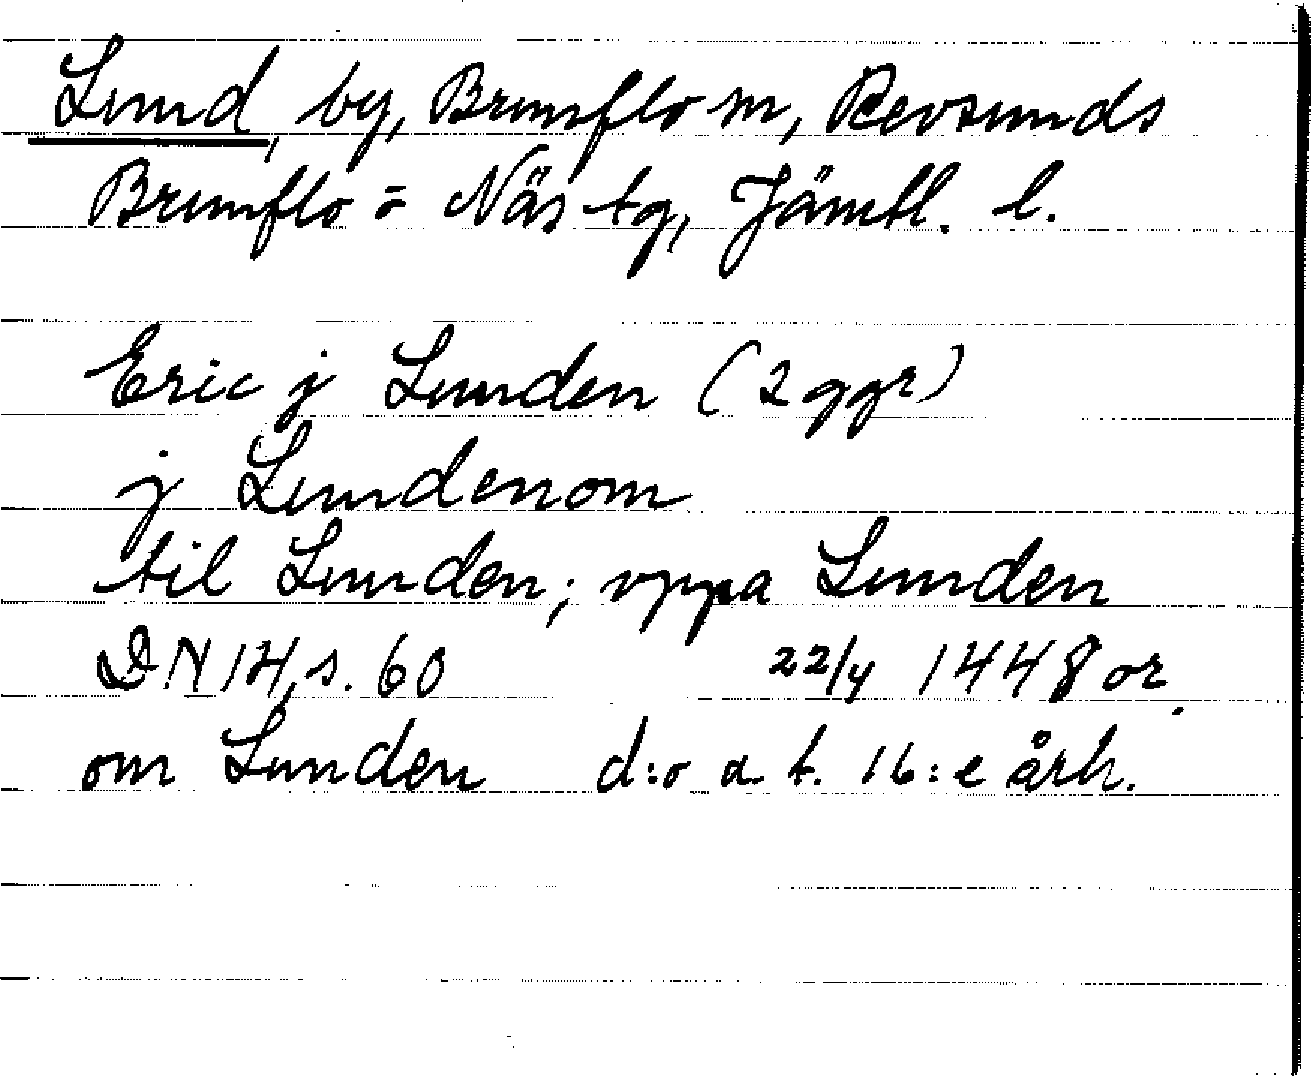 Lund, by, Brunflo sn, Revsunds
Brunflo = Näs tg, Jämtl. l.
Eric j Lunden (2 ggr)
j Lundenom
til Lunden; vppa Lunden
DN 14, s. 60 22/4 1448 or.
om Lunden d:o a t. 16:e årh.